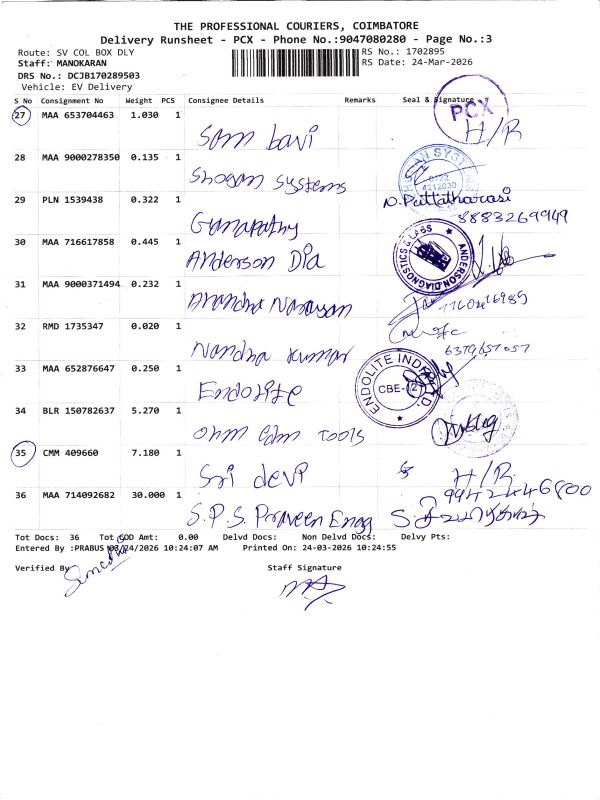 THE PROFESSIONAL COURIERS, COIMBATORE
Delivery Runsheet - PCX - Phone No.:9047080280 - Page No.:3
Route: SV COL BOX DLY
RS No.: 1702895
Staff: MANOKARAN
RS Date: 24-Mar-2026
DRS No.: DCJB170289503
Vehicle: EV Delivery
S No Consignment No Weight PCS Consignee Details Remarks Seal & Signature
27 MAA 653704463 1.030 1
PCX
H/R
28 MAA 9000278350 0.135 1
Systems
29 PLN 1539438 0.322 1
8883269949
Ganapathy
30 MAA 716617858 0.445 1
Anderson Dia
ANDERSON DIAGNOSTICS & LABS
31 MAA 9000371494 0.232 1
Narayan
32 RMD 1735347 0.020 1
6379657057
Nandha kumar
33 MAA 652876647 0.250 1
Endolite
CBE-
34 BLR 150782637 5.270 1
Ohm Edm Tools
35 CMM 409660 7.180 1
Sri devi
H/R
36 MAA 714092682 30.000 1
9942446800
S.P.S. Praveen Engg
Tot Docs: 36 Tot COD Amt: 0.00 Delvd Docs: Non Delvd Docs: Delvy Pts:
Entered By :PRABUS 03/24/2026 10:24:07 AM Printed On: 24-03-2026 10:24:55
Verified By
Staff Signature